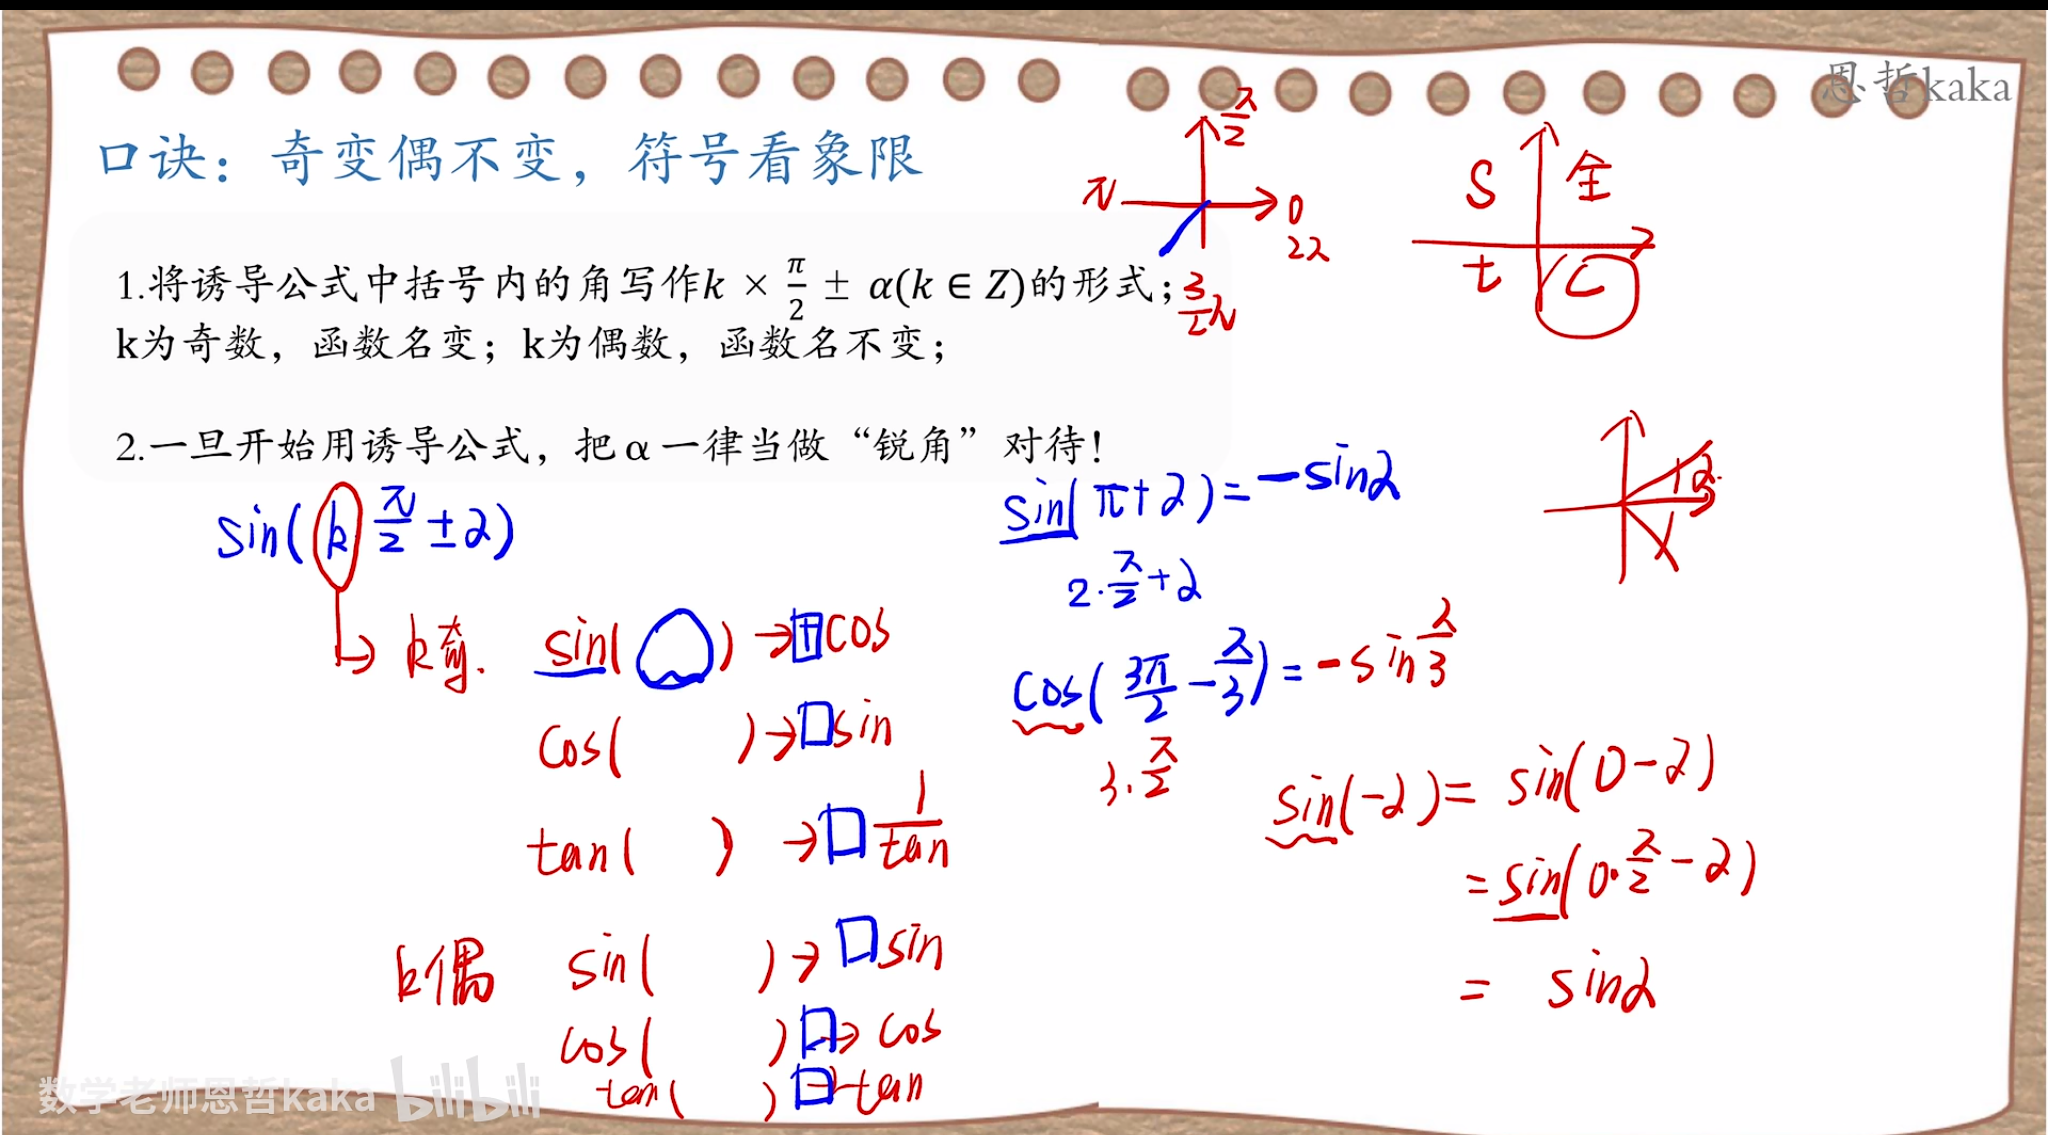 恩哲kaka
口诀：奇变偶不变，符号看象限
1.将诱导公式中括号内的角写作k × π/2 ± α(k ∈ Z)的形式；
k为奇数，函数名变；k为偶数，函数名不变；
2.一旦开始用诱导公式，把α一律当做“锐角”对待！
π/2
π
0
2π
3/2π
S 全
t C
α
sin(k π/2 ± α)
k奇. sin( ) → + cos
cos( ) → □ sin
tan( ) → □ 1/tan
k偶 sin( ) → □ sin
cos( ) □ → cos
tan( ) □ → tan
sin(π+α) = -sinα
2·π/2+α
cos(3π/2 - π/3) = -sin π/3
3·π/2
sin(-α) = sin(0-α)
= sin(0·π/2 - α)
= sinα
数学老师恩哲kaka bilibili